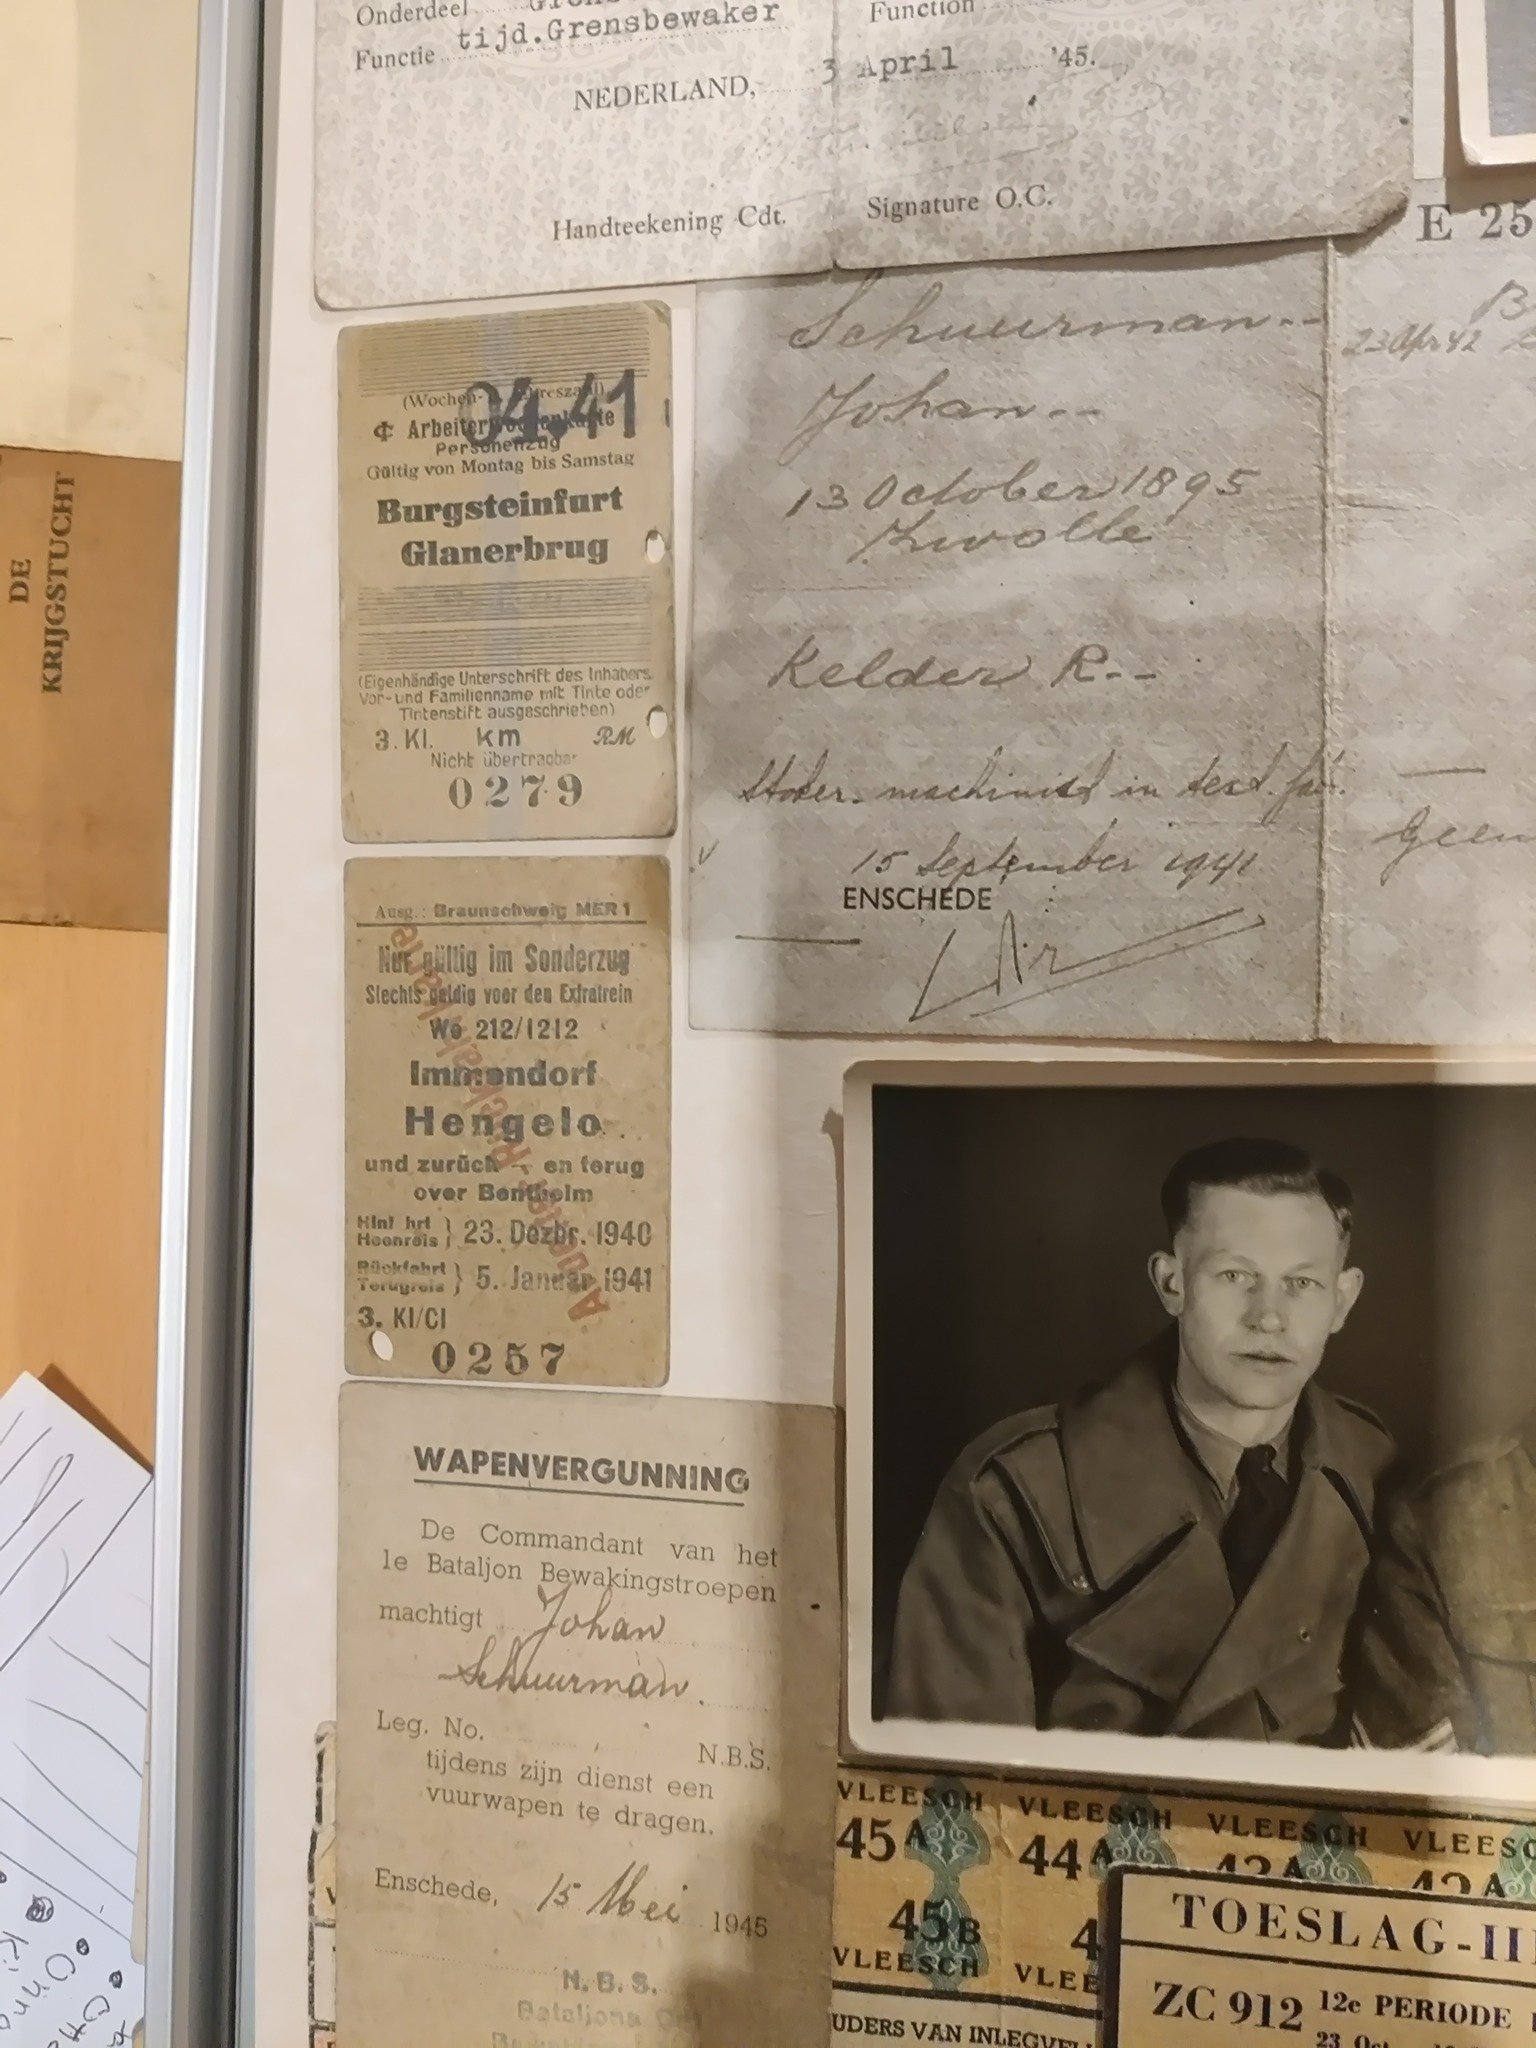 Onderdeel
Functie tijd.Grensbewaker
Function
NEDERLAND, 3 April '45.
Handteekening Cdt.
Signature O.C.
E 25
DE
KRIJGSTUCHT
(Wochen-
04.41
Personenzug
Gültig von Montag bis Samstag
Burgsteinfurt
Glanerbrug
(Eigenhändige Unterschrift des Inhabers
Vor-und Familienname mit Tinte oder
Tintenstift ausgeschrieben)
3. Kl. km RM
Nicht übertragbar
0279
Schuurman--
Johan--
13 October 1895
Zwolle
Kelder R--
Stoker-machinist in text. fab.
15 September 1941
ENSCHEDE
23 Apr 42
Geen
Ausg.: Braunschweig MER 1
Nur gültig im Sonderzug
Slechts geldig voor den Extratrein
We 212/1212
Immendorf
Hengelo
und zurück - en terug
over Bentheim
Hinfahrt
Heenreis } 23. Dezbr. 1940
Rückfahrt
Terugreis } 5. Januar 1941
3. Kl/Cl
0257
WAPENVERGUNNING
De Commandant van het
1e Bataljon Bewakingstroepen
machtigt Johan
Schuurman.
Leg. No. N.B.S.
tijdens zijn dienst een
vuurwapen te dragen.
Enschede, 15 Mei 1945
N.B.S.
Bataljons
VLEESCH VLEESCH VLEESCH VLEESC
45A 44A
45B 4
VLEESCH VLEE
TOESLAG-III
ZC 912 12e PERIODE
23 Oct